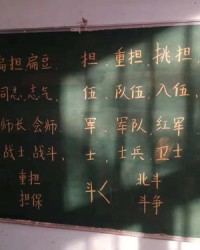 扁担 扁豆、 担、重担、挑担
同志、志气、 伍、队伍、入伍、
师长、会师、 军、军队、红军
战士、战斗、 士、士兵、卫士
重担 斗 北斗
担保 斗争